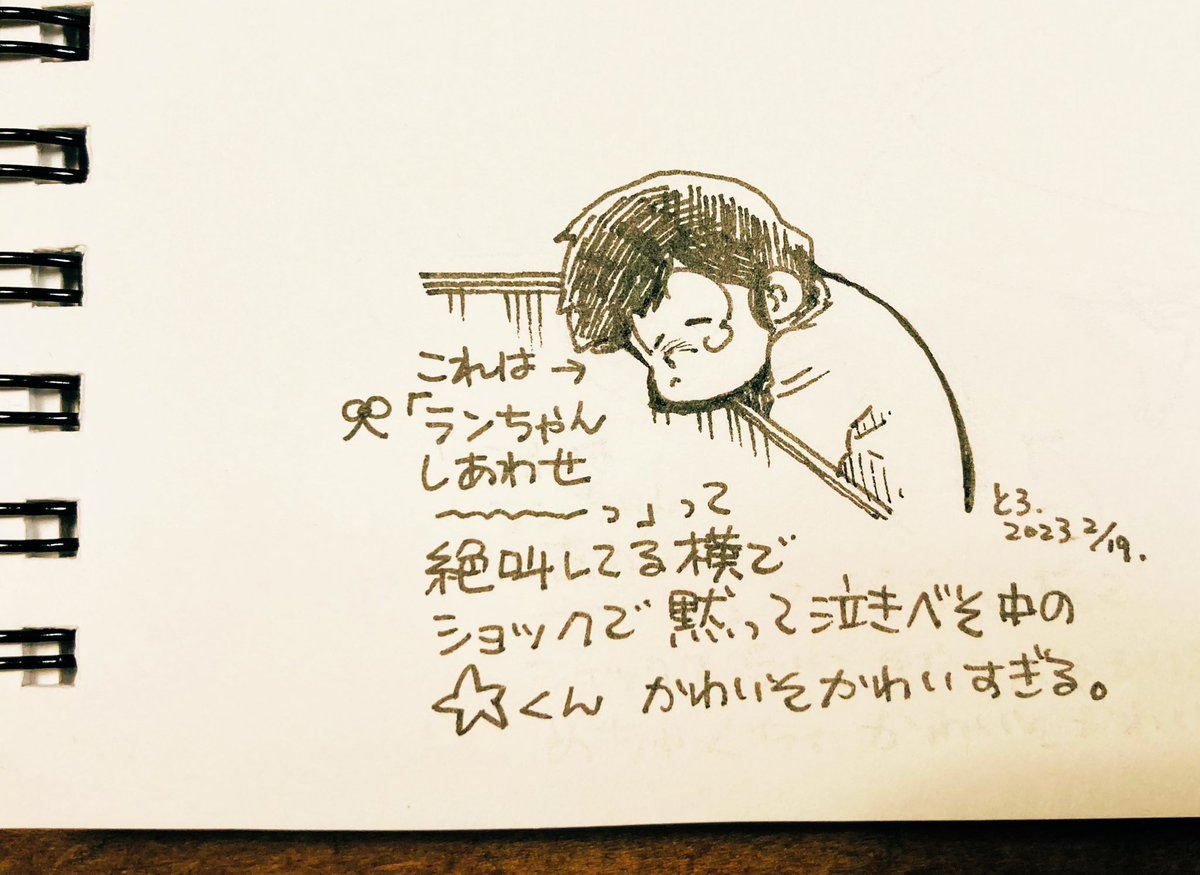 これは→
「ランちゃん
しあわせ
〜〜〜〜〜っ」って
絶叫してる横で
ショックで黙って泣きべそ中の
☆くん かわいそかわいすぎる。
とろ.
2023 2/19.